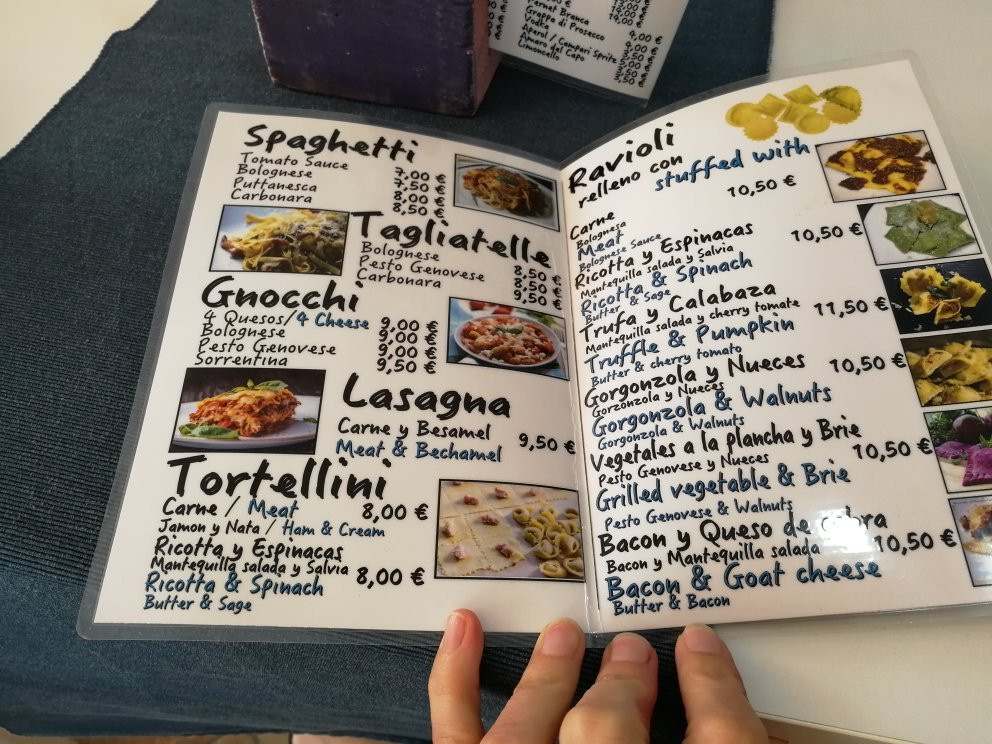 Fernet Branca
Grappa di Prosecco
Vodka
Aperol / Campari Spritz
Amaro del Capo
Limoncello
Spaghetti
Tomato Sauce 7,00 €
Bolognese 7,50 €
Puttanesca 8,00 €
Carbonara 8,50 €
Tagliatelle
Bolognese 8,50 €
Pesto Genovese 8,50 €
Carbonara 9,50 €
Gnocchi
4 Quesos/4 Cheese 9,00 €
Bolognese 9,00 €
Pesto Genovese 9,00 €
Sorrentina 9,50 €
Lasagna
Carne y Besamel 9,50 €
Meat & Bechamel
Tortellini
Carne / Meat 8,00 €
Jamon y Nata / Ham & Cream
Ricotta y Espinacas
Mantequilla salada y Salvia 8,00 €
Ricotta & Spinach
Butter & Sage
Ravioli
relleno con stuffed with
Carne 10,50 €
Bolognesa
Meat
Bolognese Sauce
Ricotta y Espinacas 10,50 €
Mantequilla salada y Salvia
Ricotta & Spinach
Butter & Sage
Trufa y Calabaza 11,50 €
Mantequilla salada y cherry tomate
Truffle & Pumpkin
Butter & cherry tomato
Gorgonzola y Nueces 10,50 €
Gorzonzola y Nueces
Gorgonzola & Walnuts
Gorgonzola & Walnuts
Vegetales a la plancha y Brie 10,50 €
Pesto Genovese y Nueces
Grilled vegetable & Brie
Pesto Genovese & Walnuts
Bacon y Queso de cabra 10,50 €
Bacon y Mantequilla salada
Bacon & Goat cheese
Butter & Bacon